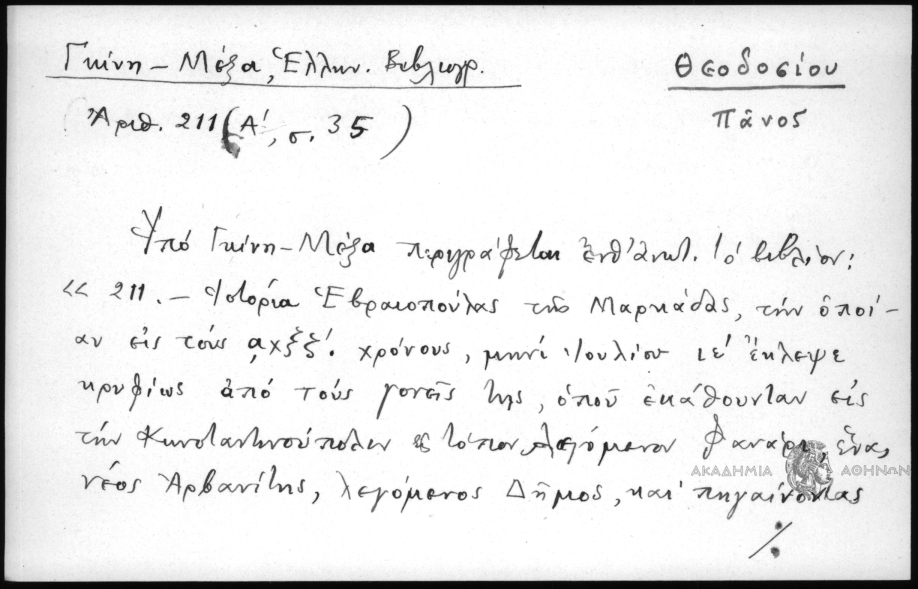 Γκίνη - Μέξα, Ἑλλην. Βιβλιογρ.
Θεοδοσίου
Ἀριθ. 211 (Α', σ. 35)
Πᾶνος
Ὑπό Γκίνη - Μέξα περιγράφεται ἐνθ' ἀνωτ. τό βιβλίον:
«211. - Ἱστορία Ἑβραιοπούλας τῆς Μαρκάδας, τήν ὁποί-
αν εἰς τούς αχξξ'. χρόνους, μηνί Ἰουλίου ιε' ἔκλεψε
κρυφίως ἀπό τούς γονεῖς της, ὁποῦ ἐκάθουνταν εἰς
τήν Κωνσταντινούπολιν εἰς τόπον λεγόμενον Φανάρι, ἕνας
νέος Ἀρβανίτης, λεγόμενος Δῆμος, καί πηγαίνοντας
ΑΚΑΔΗΜΙΑ ΑΘΗΝΩΝ
./.